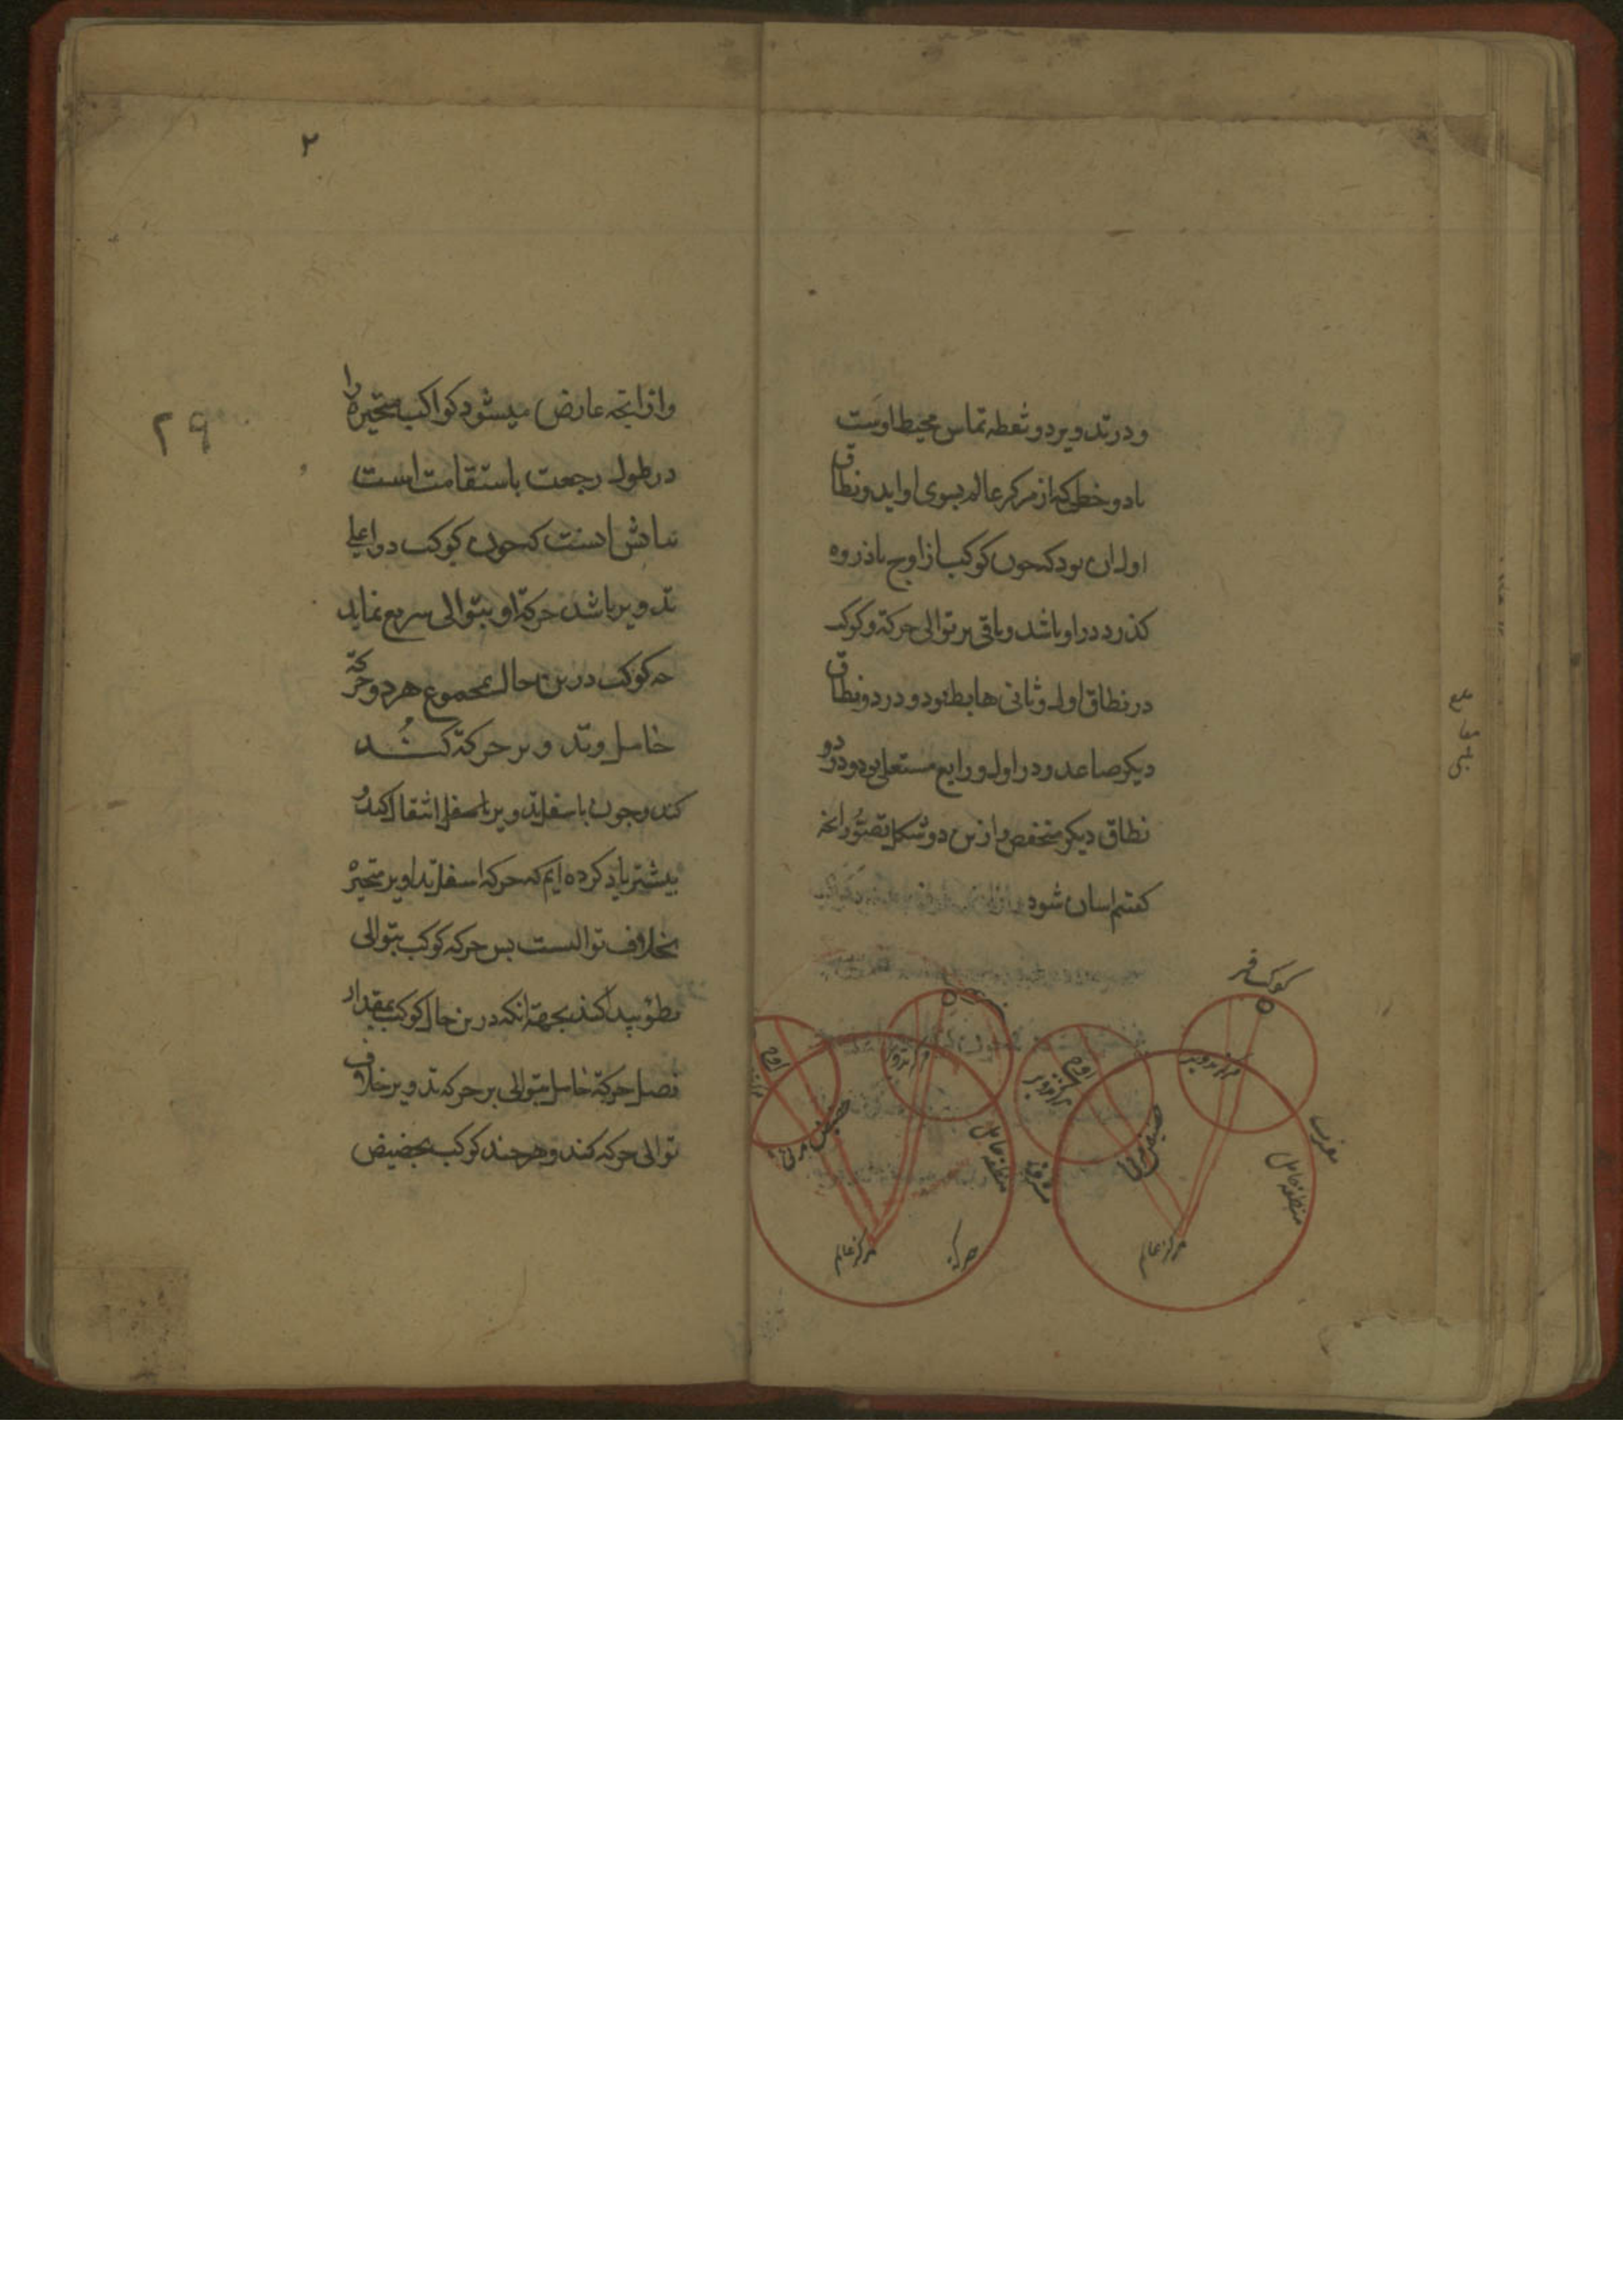 و در تدویر دو نقطه تماس محیط اوست
با دو خطی که از مرکز عالم بسوی او اید و نطاق
اول ان بود که چون کوکب از اوج با ذروه
کذرد در او باشد و باقی بر توالی حرکة و کوکب
در نطاق اول و ثانی هابط بود و در دو نطاق
دیکر صاعد و در اول و رابع مستعلی بود و در دو
نطاق دیکر منخفض و ازین دو شکل تصور انچه
کفتیم اسان شود
کوکب
مرکز تدویر
مرکز تدویر
منطقه حامل
منطقه حامل
مرکز عالم
مرکز عالم
حرکة
۲
۲۹
و از انچه عارض میشود کواکب متحیره را
در طول رجعت با ستقامت است
بیانش انست که چون کوکب در اعلی
تدویر باشد حرکة او بتوالی سریع نماید
چه کوکب درین حال بمجموع هر دو حرکة
حامل و تدویر حرکة کند
کند و چون باسفل تدویر انتقال کند و
بیشتر یاد کرده ایم که حرکة اسفل تداویر متحیره
بخلاف توالیست بس حرکه کوکب بتوالی
بطؤ بیدا کند بجهة انکه درین حال کوکب بمقدار
فصل حرکة حامل بتوالی بر حرکه تدویر خلاف
توالی حرکه کند و هر چند کوکب بحضیض